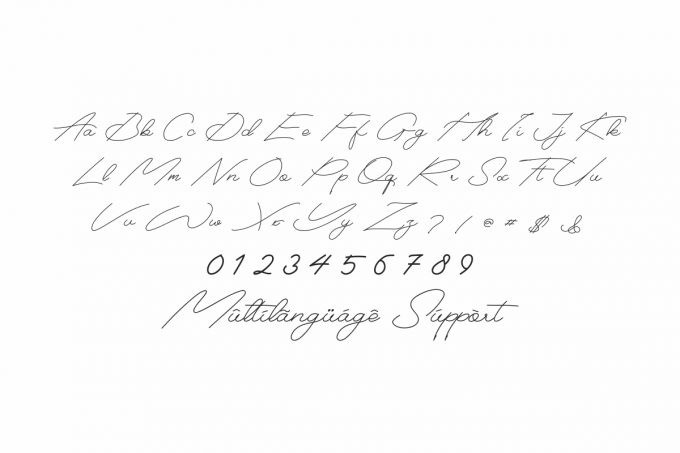 Aa Bb Cc Dd Ee Ff Gg Hh Ii Jj Kk
Ll Mm Nn Oo Pp Qq Rr Ss Tt Uu
Vv Ww Xx Yy Zz ? ! @ # $ &
0 1 2 3 4 5 6 7 8 9
Mûltílãngüágê Súppòrt